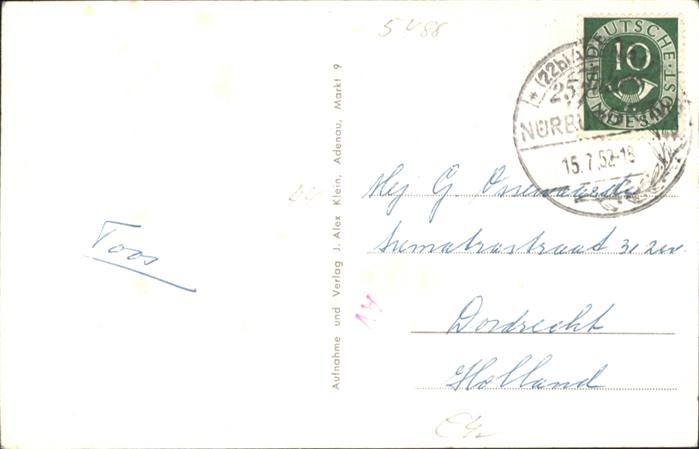 5488
DEUTSCHE BUNDESPOST
10
(22b) A
25
NÜRB
15.7.52-18
Aufnahme und Verlag J. Alex Klein, Adenau, Markt 9
Toos
Mej G.
Sumatrastraat 31
Dordrecht
Holland